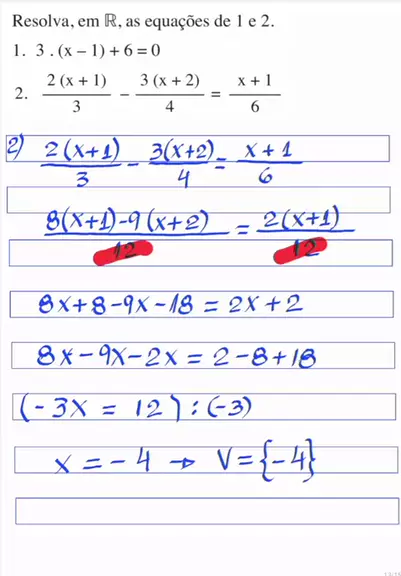 Resolva, em ℝ, as equações de 1 e 2.
1. 3 . (x – 1) + 6 = 0
2. 2 (x + 1)/3 – 3 (x + 2)/4 = x + 1/6
2) 2(x+1)/3 - 3(x+2)/4 = x+1/6
8(x+1)-9(x+2)/12 = 2(x+1)/12
8x+8-9x-18 = 2x+2
8x-9x-2x = 2-8+18
(-3x = 12) : (-3)
x = -4 → V={-4}